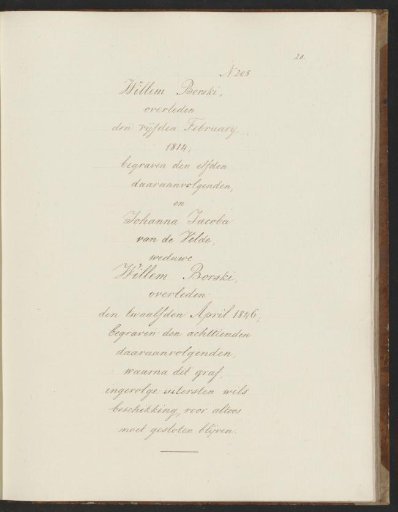 20.
N 203
Willem Borski,
overleden
den vijfden February
1814,
begraven den elfden
daaraanvolgenden,
en
Johanna Jacoba
van de Velde,
weduwe
Willem Borski,
overleden
den twaalfden April 1846,
begraven den achttienden
daaraanvolgenden,
waarna dit graf
ingevolge uitersten wils
beschikking, voor altoos
moet gesloten blijven.